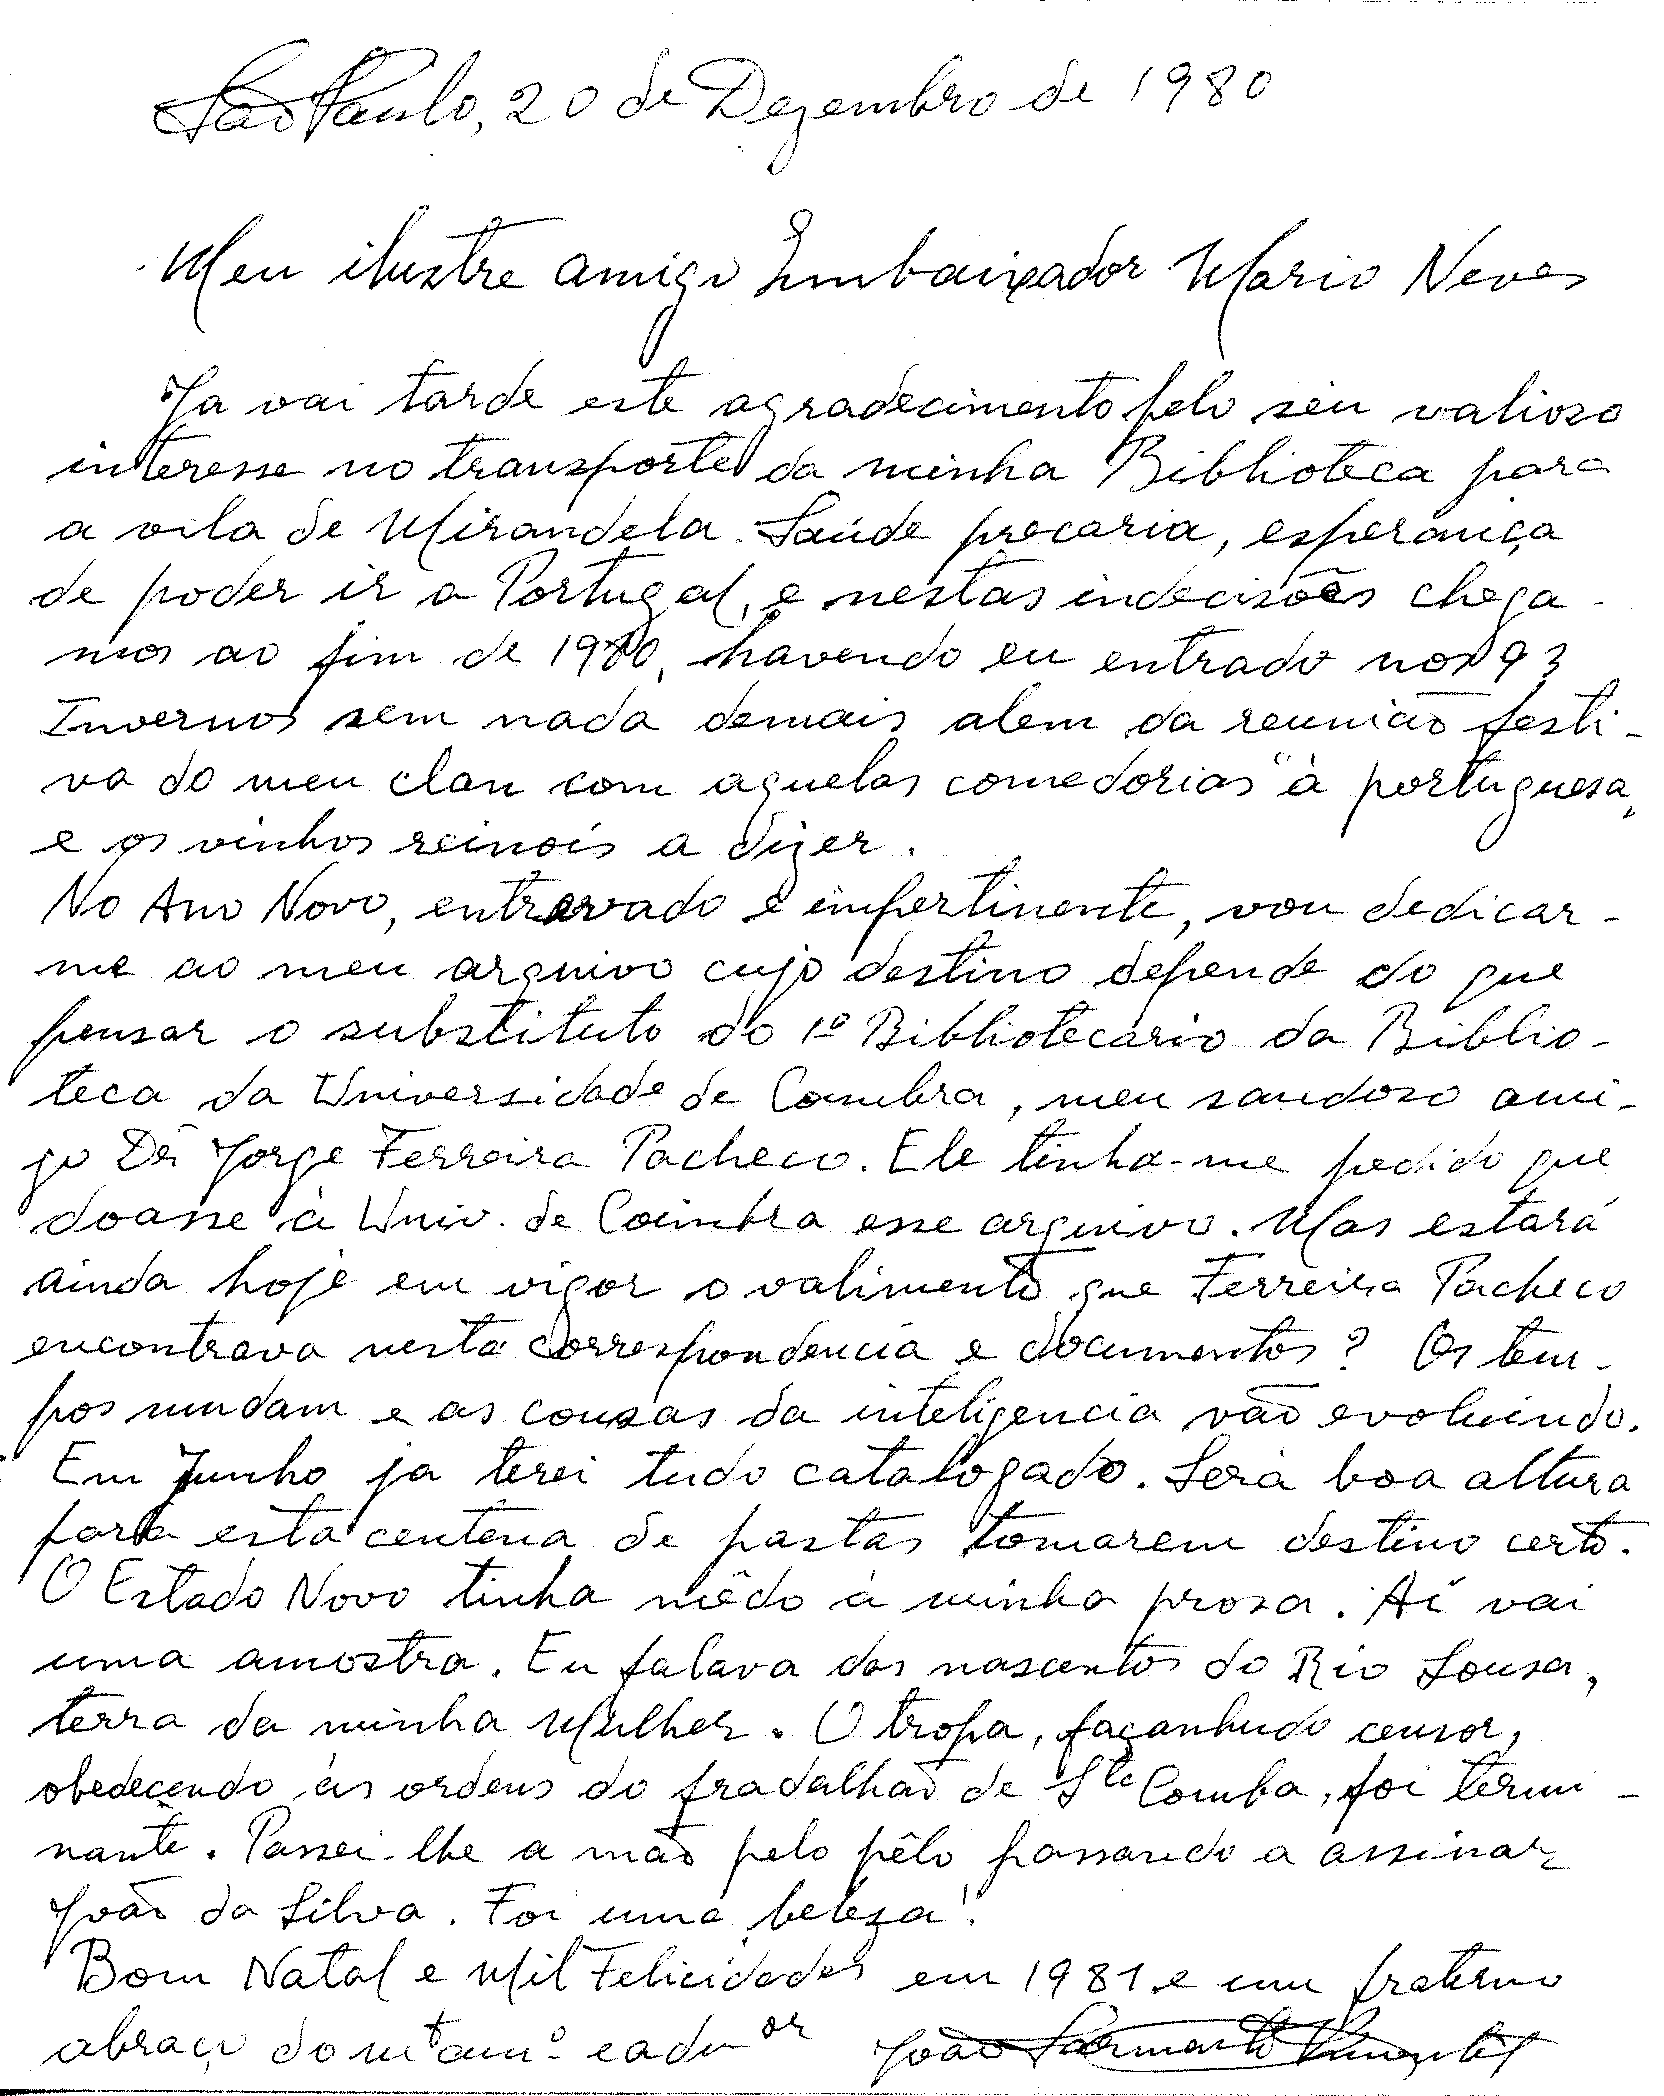 São Paulo, 20 de Dezembro de 1980
Meu ilustre amigo Embaixador Mario Neves
Ja vai tarde este agradecimento pelo seu valioso
interesse no transporte da minha Biblioteca para
a vila de Mirandela. Saúde precaria, esperança
de poder ir a Portugal, e nestas indecisões chega-
mos ao fim de 1980, havendo eu entrado nos 93
Invernos sem nada demais alem da reunião festi-
va do meu clan com aquelas comedorias "à portuguesa"
e os vinhos reinois a dizer.
No Ano Novo, entrevado e impertinente, vou dedicar-
me ao meu arquivo cujo destino depende do que
pensar o substituto do 1º Bibliotecario da Biblio-
teca da Universidade de Coimbra, meu saudoso ami-
go Dr. Jorge Ferreira Pacheco. Ele tinha-me pedido que
doasse à Univ. de Coimbra esse arquivo. Mas estará
ainda hoje em vigor o valimento que Ferreira Pacheco
encontrava nesta correspondencia e documentos? Os tem-
pos mudam e as cousas da inteligencia vão evoluindo.
Em Junho ja terei tudo catalogado. Será boa altura
para esta centena de pastas tomarem destino certo.
O Estado Novo tinha mêdo à minha prosa. Aí vai
uma amostra. Eu falava das nascentes do Rio Sousa,
terra da minha Mulher. O tropa, façanhudo censor,
obedecendo às ordens do fradalhão de Sta Comba, foi termi-
nante. Passei-lhe a mão pelo pêlo passando a assinar
João da Silva. Foi uma beleza!
Bom Natal e Mil Felicidades em 1981 e um fraterno
abraço do mt am.º e adm.or João Sarmento Pimentel